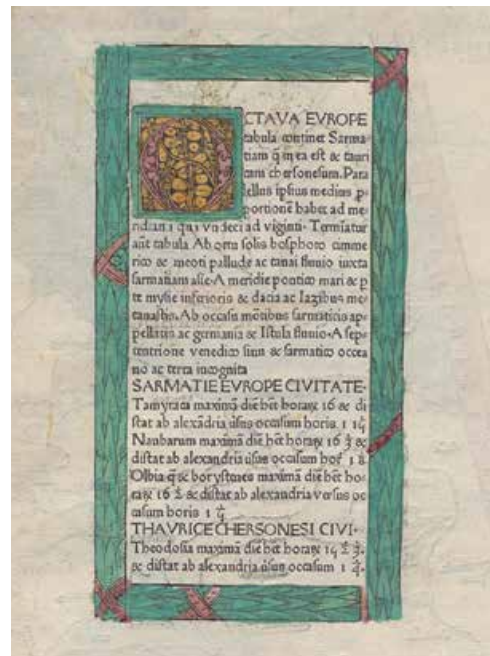 OCTAVA EVROPE
tabula continet Sarma-
tiam q̄ in ea est & tauri
cam chersonesum. Para
lellus ipsius medius p̱-
portionē habet ad me-
ridianū quā undeci ad viginti. Termīatur
aūt tabula Ab ortu solis bosphoro cimme
rico & meoti pallude ac tanai fluuio iuxta
sarmatiam asie. A meridie pontico mari & p
te mysie inferioris & dacia ac Iazibus me-
tanastis. Ab occasu mōtibus sarmaticis ap-
pellatis ac germania & Istula fluuio. A sep-
tentrione venedico sinu & sarmatico occea
no ac terra incognita
SARMATIE EVROPE CIVITATE.
Tamyraca maximā diē hēt horaꝝ 16 & di
stat ab alexādria ūsus occasum horis 1
Naubarum maximā diē hēt horaꝝ 16 &
distat ab alexandria ūsus occasum hoꝝ 1
Olbia q̄ & borystenes maximā diē hēt ho-
raꝝ 16 & distat ab alexandria versus oc
casum horis 1
THAVRICE CHERSONESI CIVI.
Theodosia maximā diē hēt horaꝝ 15
& distat ab alexandria ūsus occasum 1